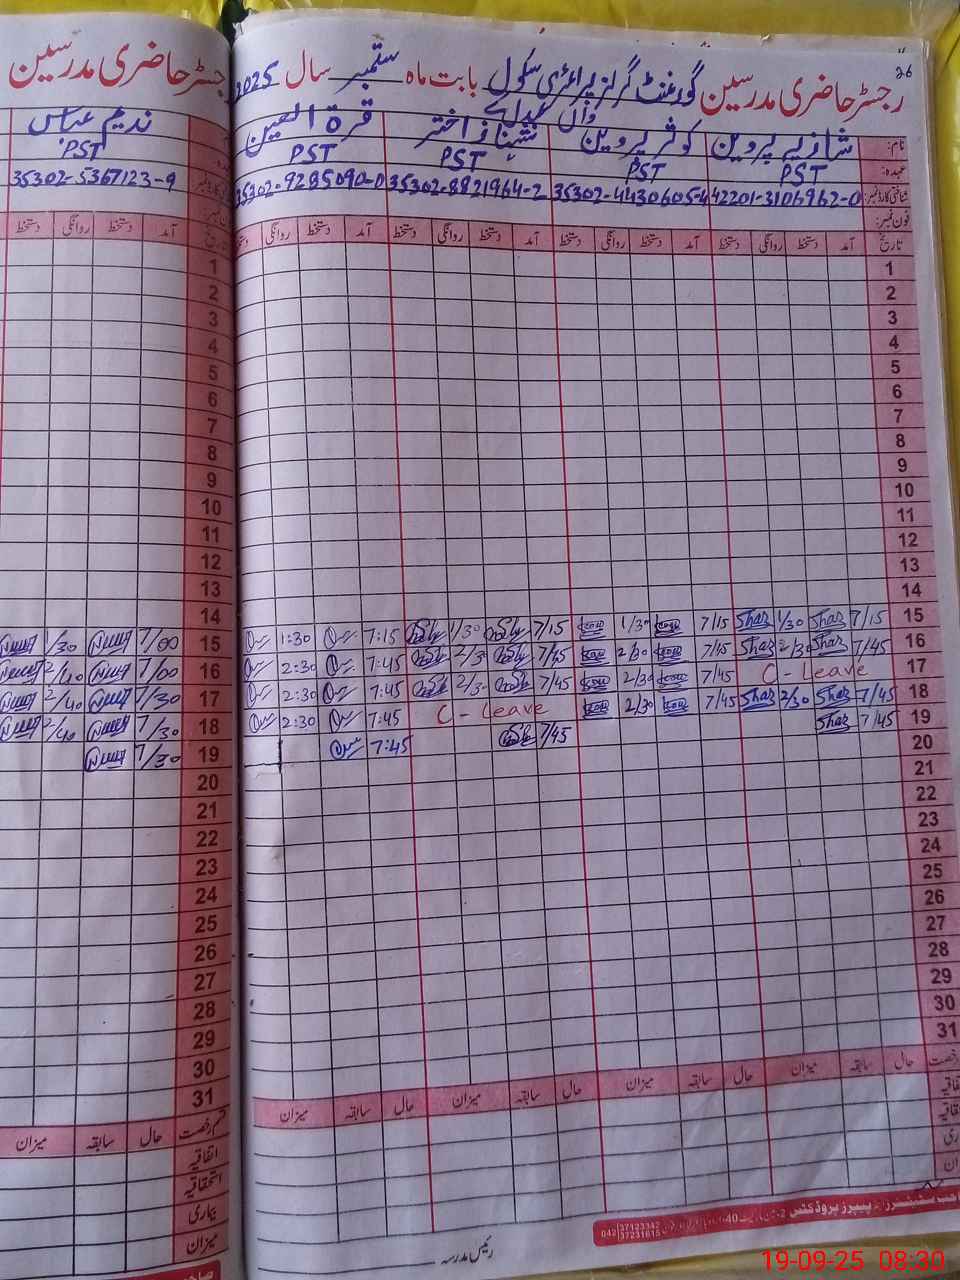 26
رجسٹر حاضری مدرسین گورنمنٹ گرلز پرائمری سکول بابت ماہ ستمبر سال 2025
واں
نام: شازیہ پروین کوثر پروین شہناز اختر قرة العین
عہدہ: PST PST PST PST
شناختی کارڈ نمبر: 42201-3106962-0 35302-4430605-4 35302-8821964-2 35302-9285090-0
فون نمبر:
تاریخ آمد دستخط روانگی دستخط آمد دستخط روانگی دستخط آمد دستخط روانگی دستخط آمد دستخط روانگی دستخط
1
2
3
4
5
6
7
8
9
10
11
12
13
14
15 7/15 Shaz 1/30 Shaz 7/15 kow 1/30 kow 7/15 1/30 7:15 1:30
16 7/45 Shaz 2/30 Shaz 7/45 kow 2/30 kow 7/45 2/30 7:45 2:30
17 C - Leave 7/45 kow 2/30 kow 7/45 2/30 7:45 2:30
18 7/45 Shaz 2/30 Shaz 7/45 kow 2/30 kow C - Leave 7:45 2:30
19 7/45 Shaz 7/45 7:45
20
21
22
23
24
25
26
27
28
29
30
31
رخصت حال سابقہ میزان حال سابقہ میزان حال سابقہ میزان
رئیس مدرسہ
042 37123342
37231615
رجسٹر حاضری مدرسین
ندیم عباس
PST
35302-5367123-9
تاریخ آمد دستخط روانگی دستخط
1
2
3
4
5
6
7
8
9
10
11
12
13
14
15 7/00 1/30
16 7/00 2/40
17 7/30 2/40
18 7/30 2/40
19 7/30
20
21
22
23
24
25
26
27
28
29
30
31
قسم رخصت حال سابقہ میزان
اتفاقیہ
استحقاقیہ
بیماری
میزان
19-09-25 08:30